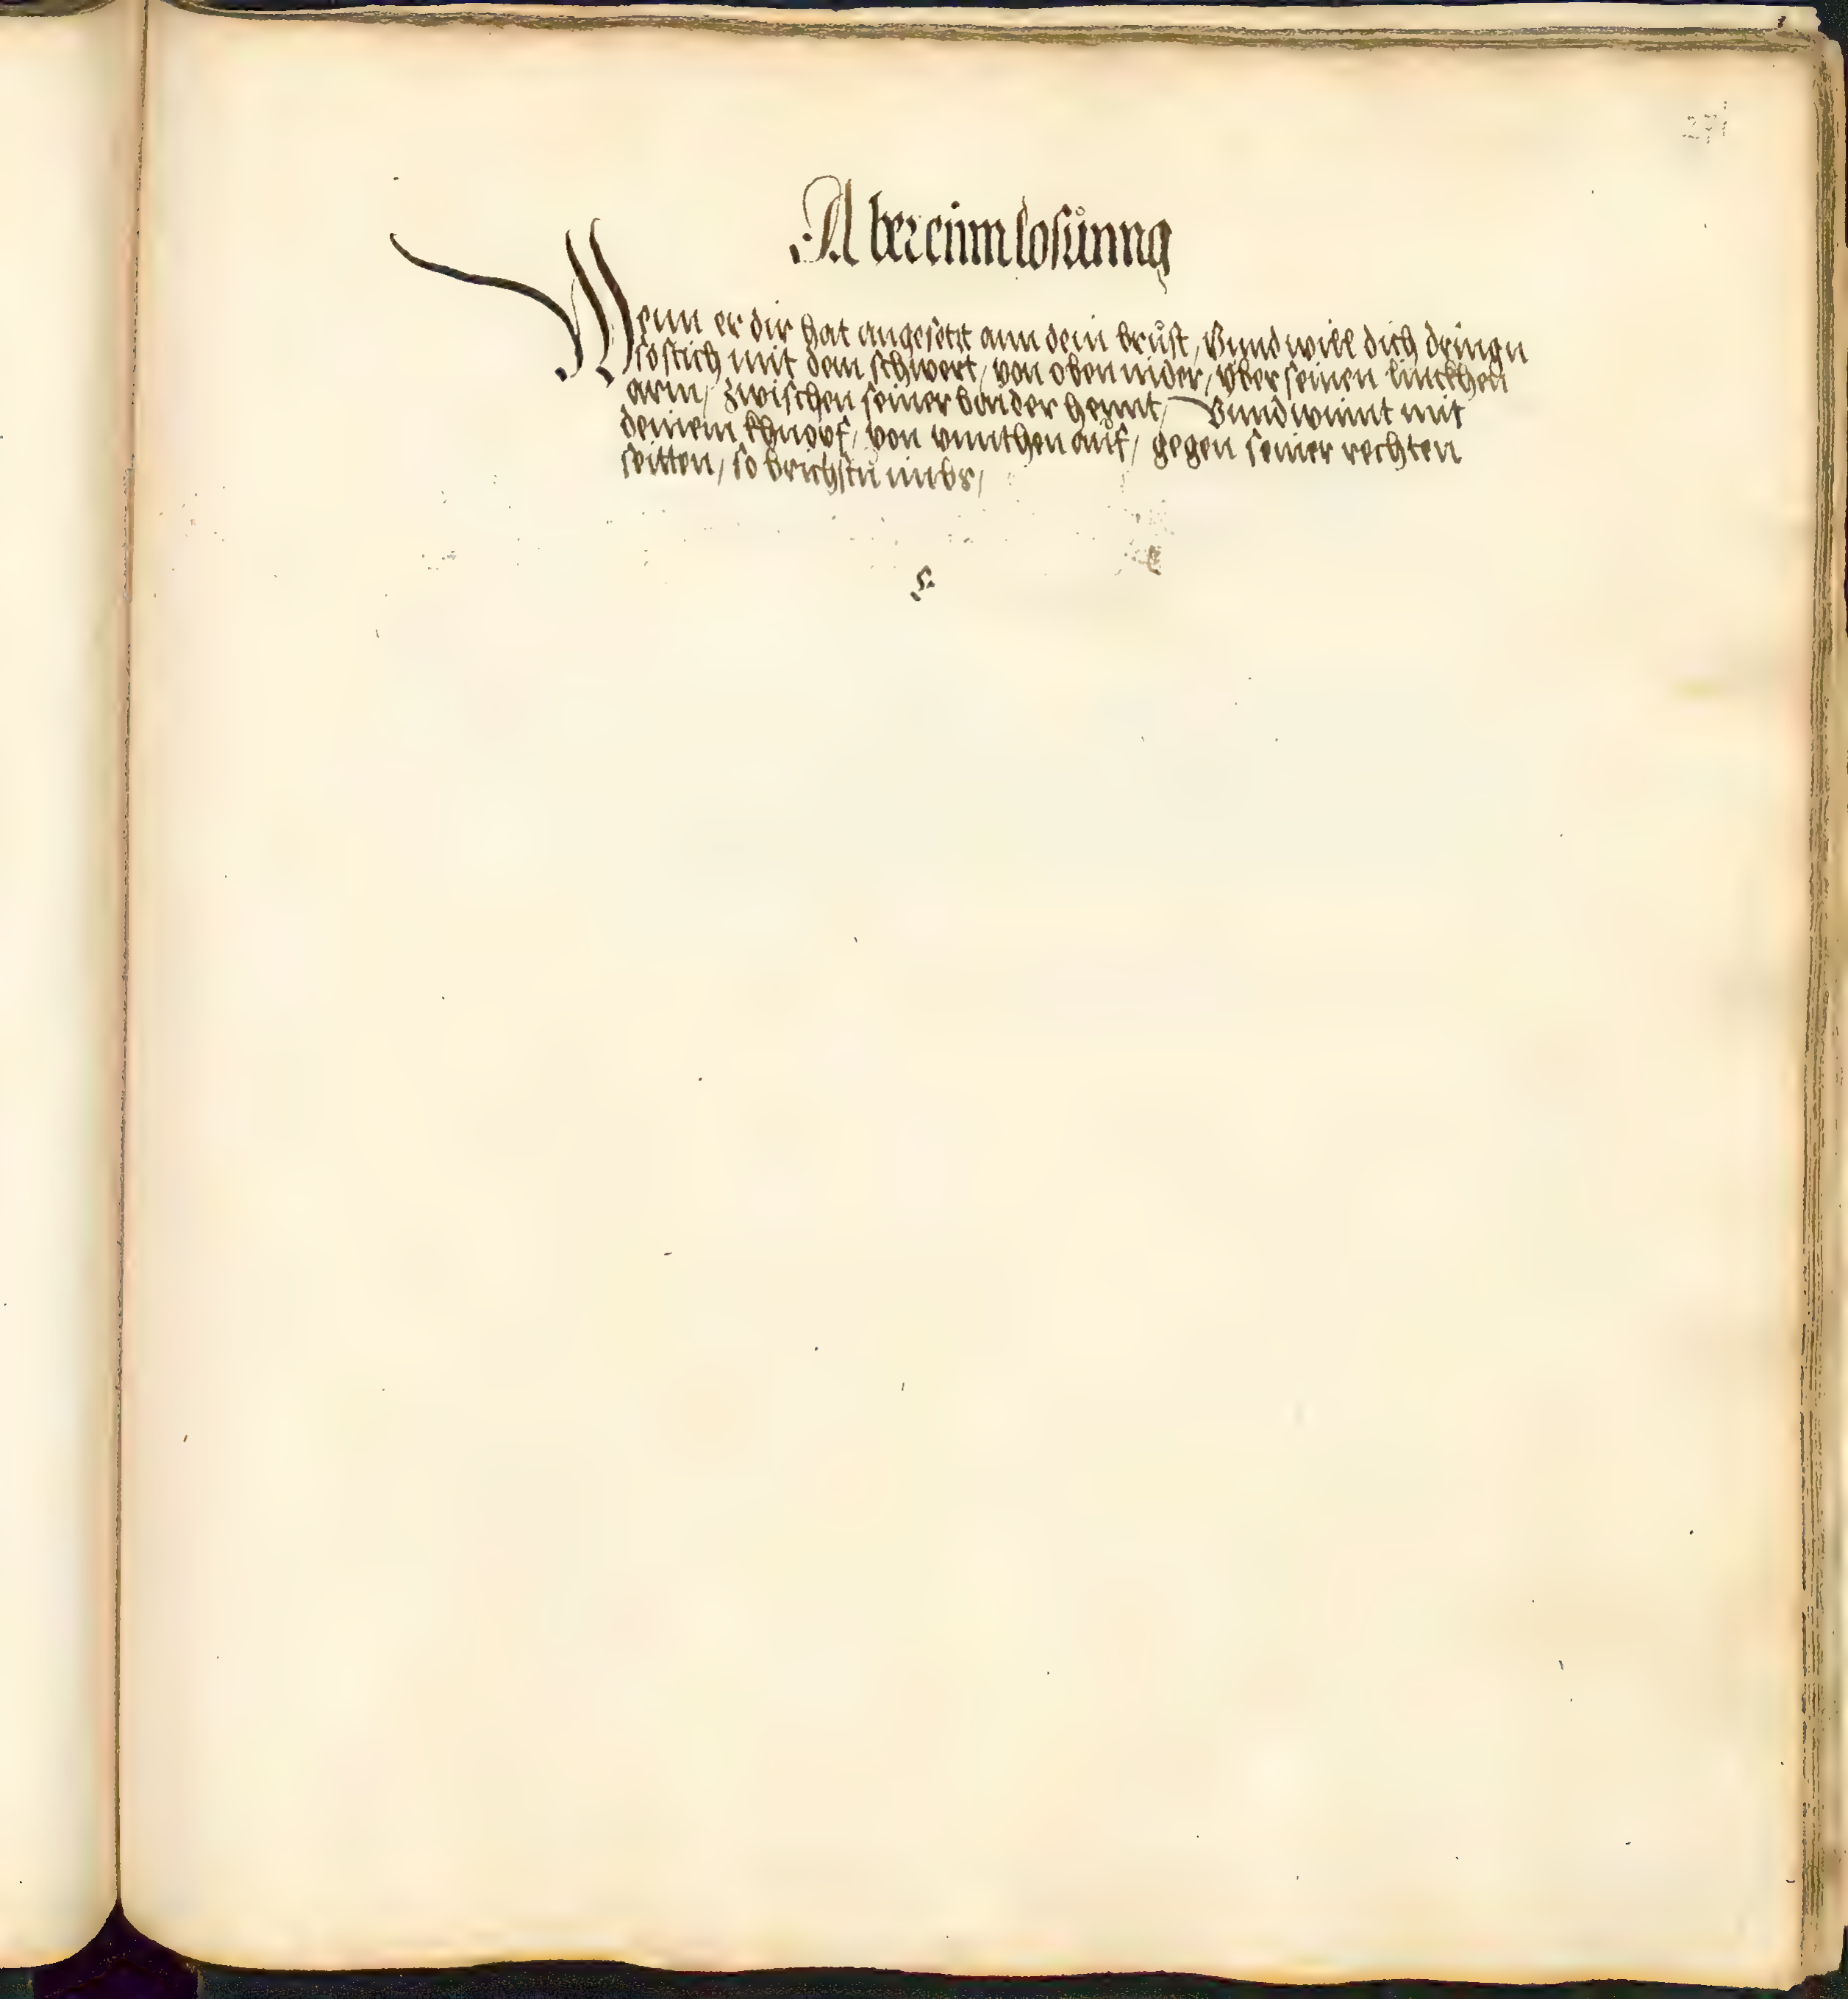 Aber einn losůnng
Wenn er dir hat angesetzt ann dein brůst, Vnnd will dich dringn
so stich mit dem schwert, von oben nider, vber seinen linckhen
arm, zwischen seiner baider hennt, Vnnd winnt mit
deinem khnopf, von vnnthen aůf, gegen seiner rechten
seitten, so brichstů